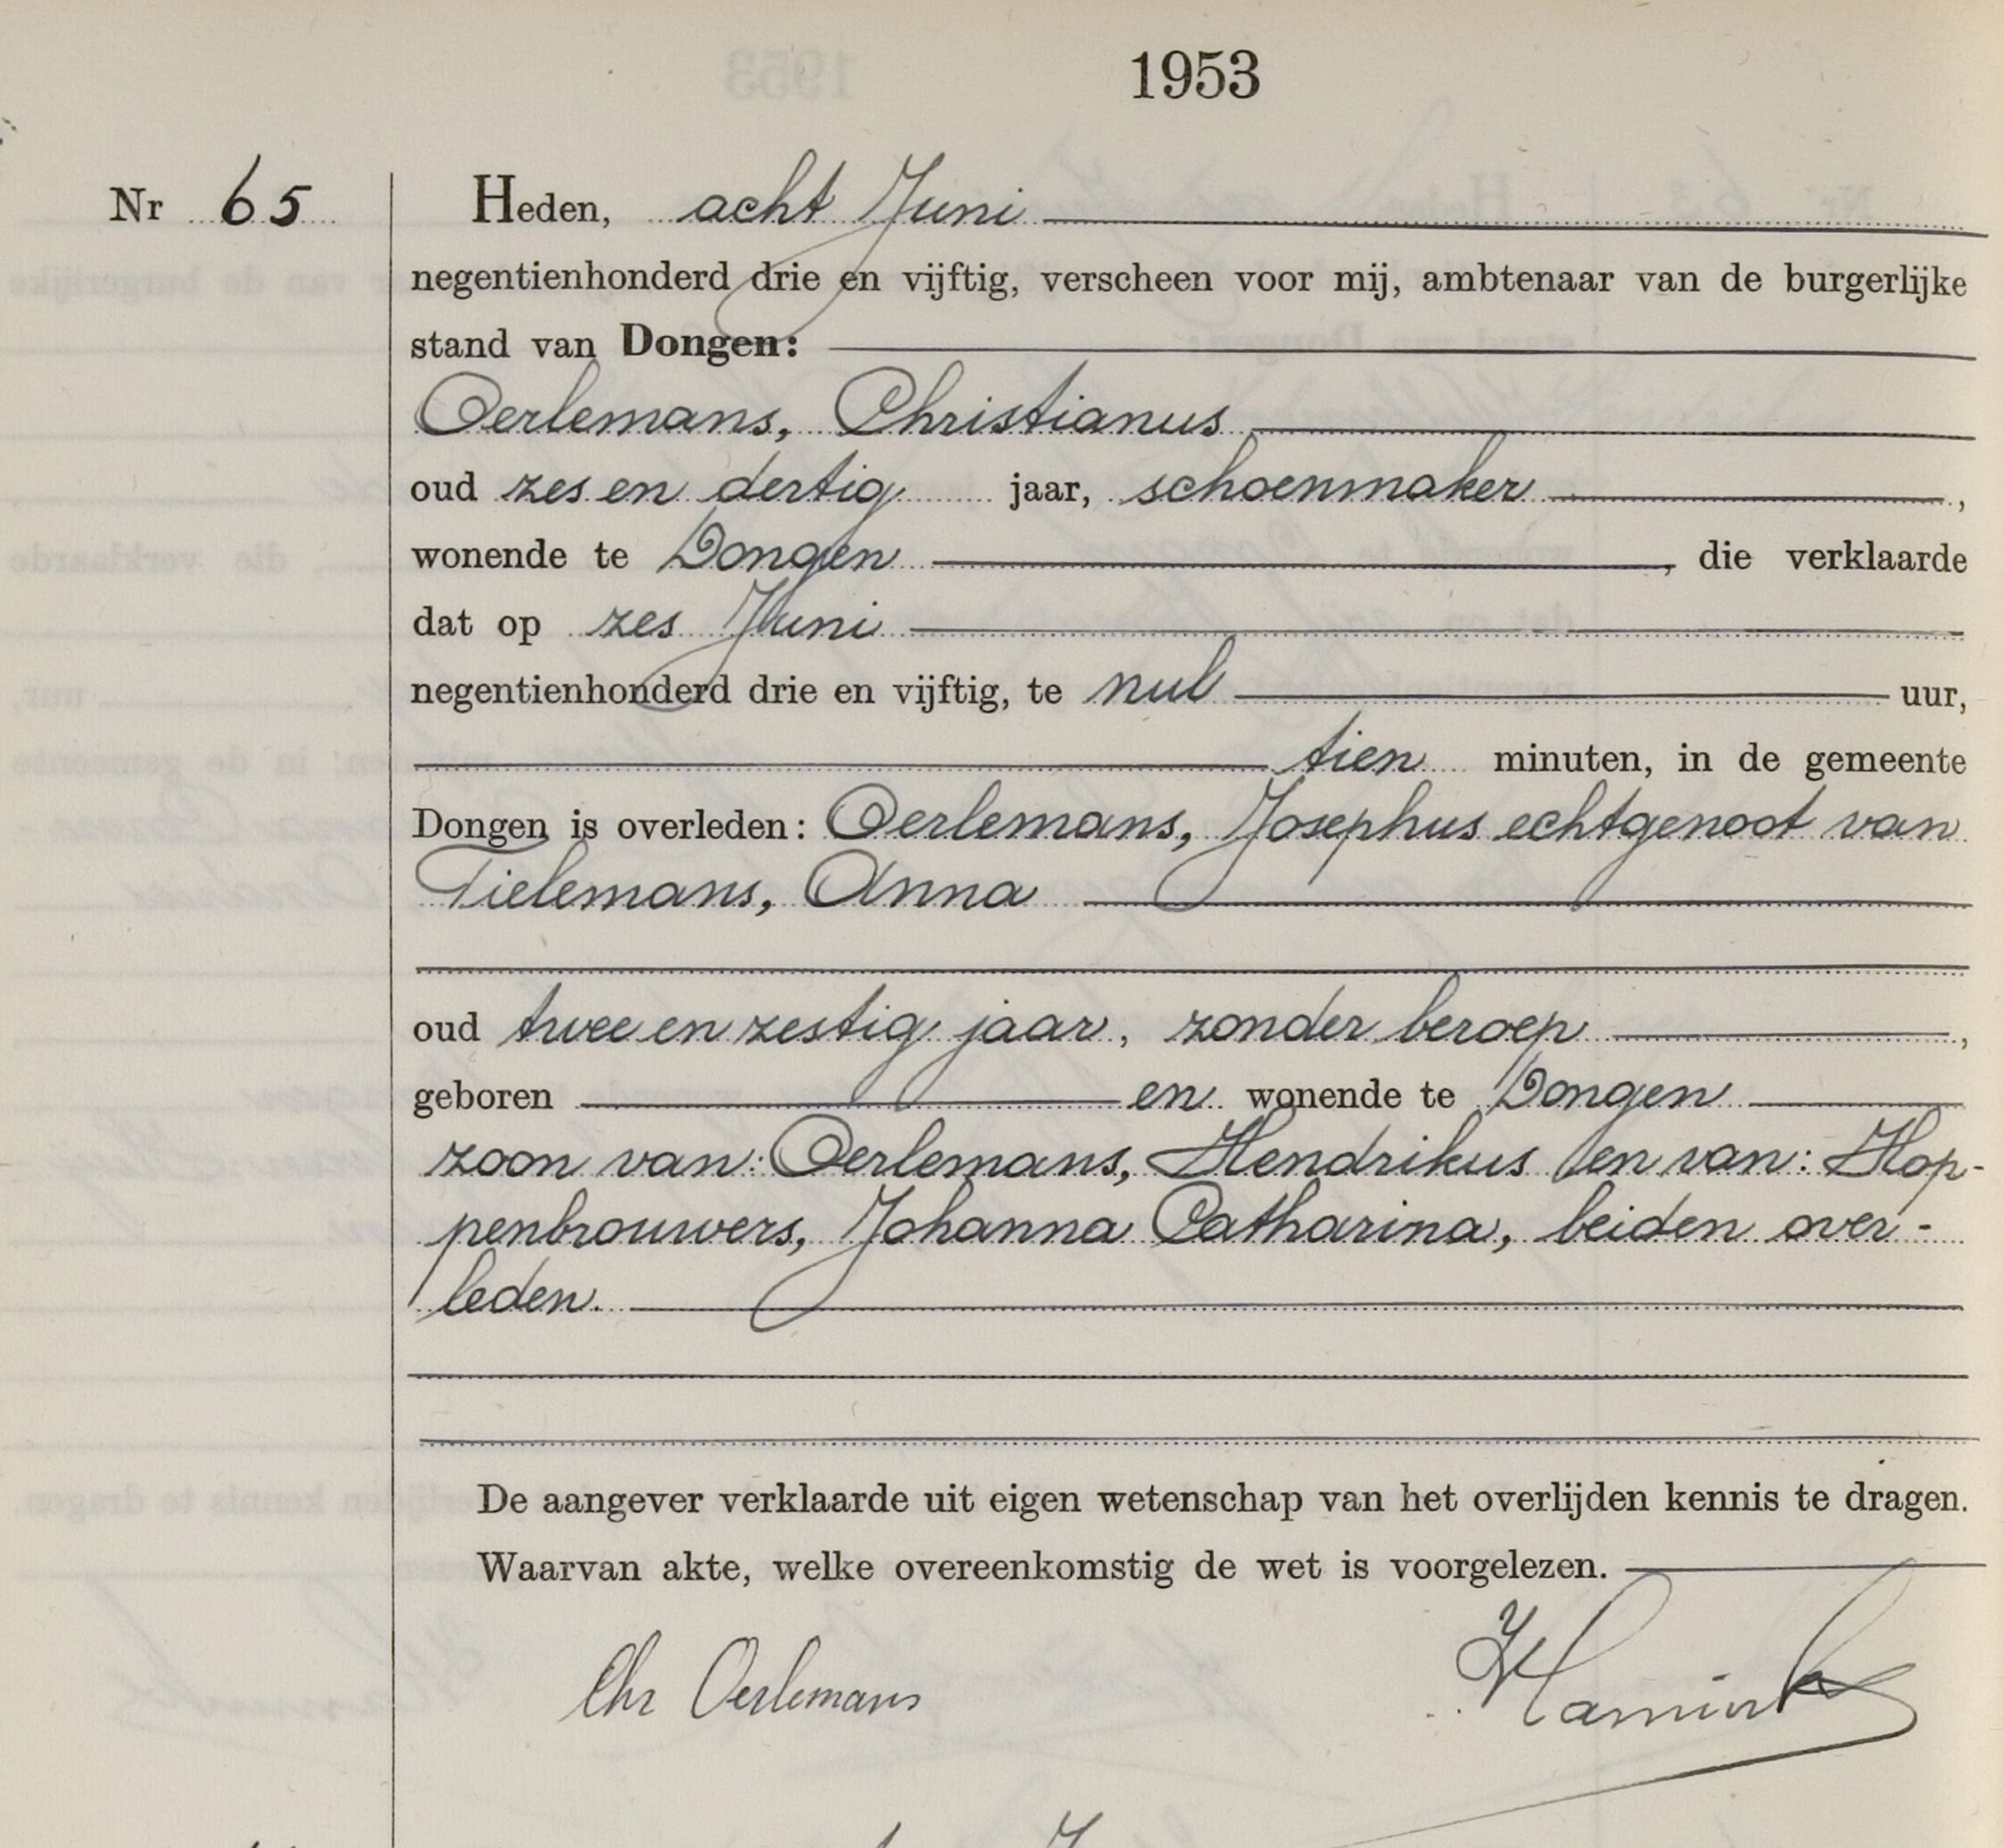 1953
Nr 65
Heden, acht Juni
negentienhonderd drie en vijftig, verscheen voor mij, ambtenaar van de burgerlijke
stand van Dongen:
Oerlemans, Christianus
oud zes en dertig jaar, schoenmaker,
wonende te Dongen, die verklaarde
dat op zes Juni
negentienhonderd drie en vijftig, te nul uur,
tien minuten, in de gemeente
Dongen is overleden: Oerlemans, Josephus echtgenoot van
Tielemans, Anna
oud twee en zestig jaar, zonder beroep,
geboren en wonende te Dongen
zoon van: Oerlemans, Hendrikus en van: Hop-
penbrouwers, Johanna Catharina, beiden over-
leden.
De aangever verklaarde uit eigen wetenschap van het overlijden kennis te dragen.
Waarvan akte, welke overeenkomstig de wet is voorgelezen.
Chr Oerlemans